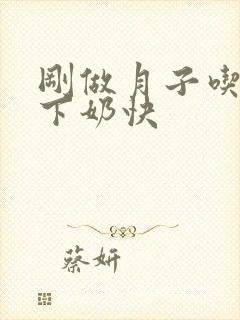 剛做月子喫
下奶快
蔡妍